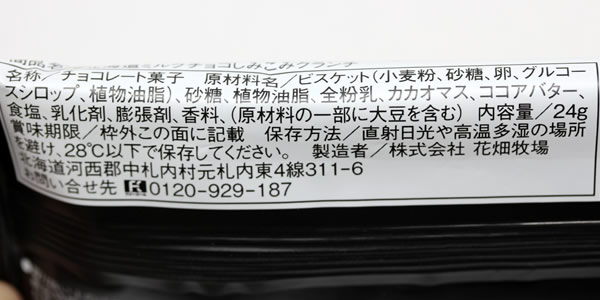 ミルクチョコしみこみクランチ
名称／チョコレート菓子 原材料名／ビスケット(小麦粉、砂糖、卵、グルコー
スシロップ、植物油脂)、砂糖、植物油脂、全粉乳、カカオマス、ココアバター、
食塩、乳化剤、膨張剤、香料、(原材料の一部に大豆を含む) 内容量／24g
賞味期限／枠外この面に記載 保存方法／直射日光や高温多湿の場所
を避け、28℃以下で保存してください。 製造者／株式会社 花畑牧場
北海道河西郡中札内村元札内東4線311-6
お問い合せ先 0120-929-187